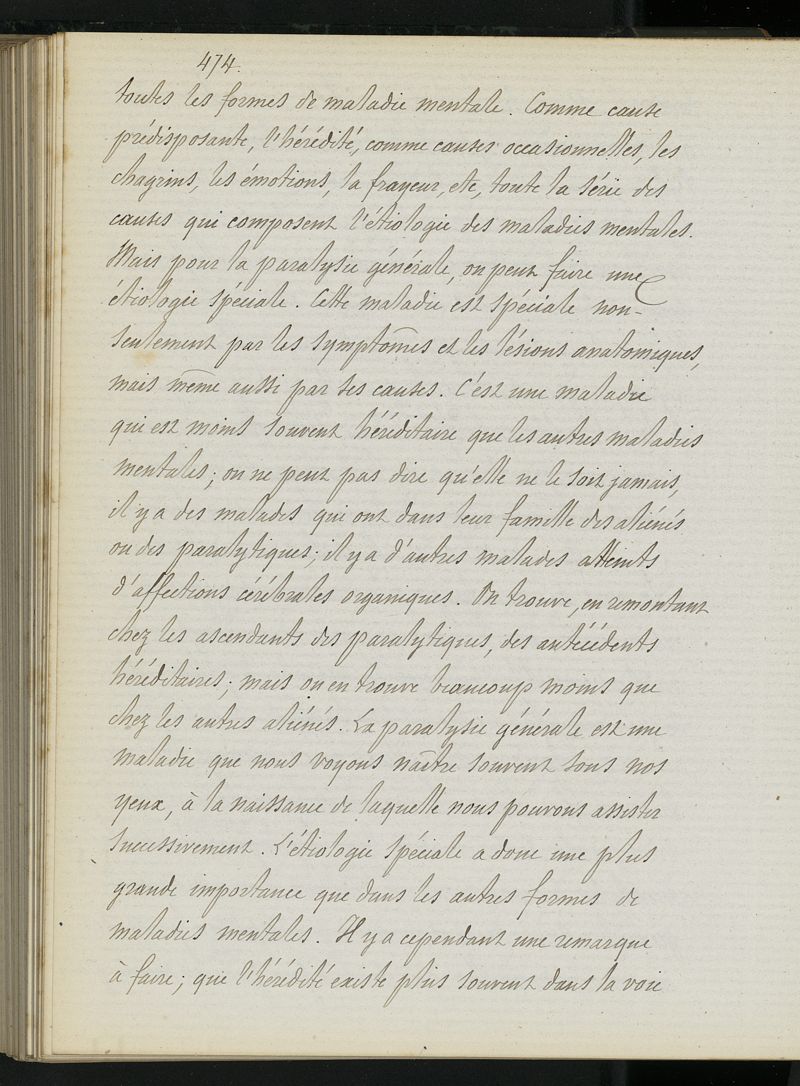 474.
toutes les formes de maladie mentale. Comme cause
prédisposante, l'hérédité, comme causes occasionnelles, les
chagrins, les émotions, la frayeur, etc, toute la série des
causes qui composent l'étiologie des maladies mentales.
Mais pour la paralysie générale, on peut faire une
étiologie spéciale. Cette maladie est spéciale non-
seulement par les symptômes et les lésions anatomiques,
mais même aussi par ses causes. C'est une maladie
qui est moins souvent héréditaire que les autres maladies
mentales; on ne peut pas dire qu'elle ne le soit jamais,
il y a des malades qui ont dans leur famille des aliénés
ou des paralytiques; il y a d'autres malades atteints
d'affections cérébrales organiques. On trouve, en remontant
chez les ascendants des paralytiques, des antécédents
héréditaires; mais on en trouve beaucoup moins que
chez les autres aliénés. La paralysie générale est une
maladie que nous voyons naître souvent sous nos
yeux, à la naissance de laquelle nous pouvons assister
successivement. L'étiologie spéciale a donc une plus
grande importance que dans les autres formes de
maladies mentales. Il y a cependant une remarque
à faire; que l'hérédité existe plus souvent dans la voie